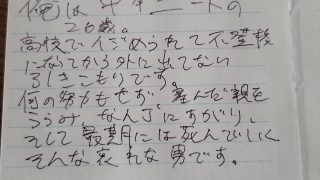 俺はキタニートの
26歳。
高校でイジめられて不登校
になってから外に出てない
ろしきこもりです。
何の努力もせず、産んだ親を
うらみ、なんJにすがり、
そして最期には死んでいく
そんな哀れな男です。